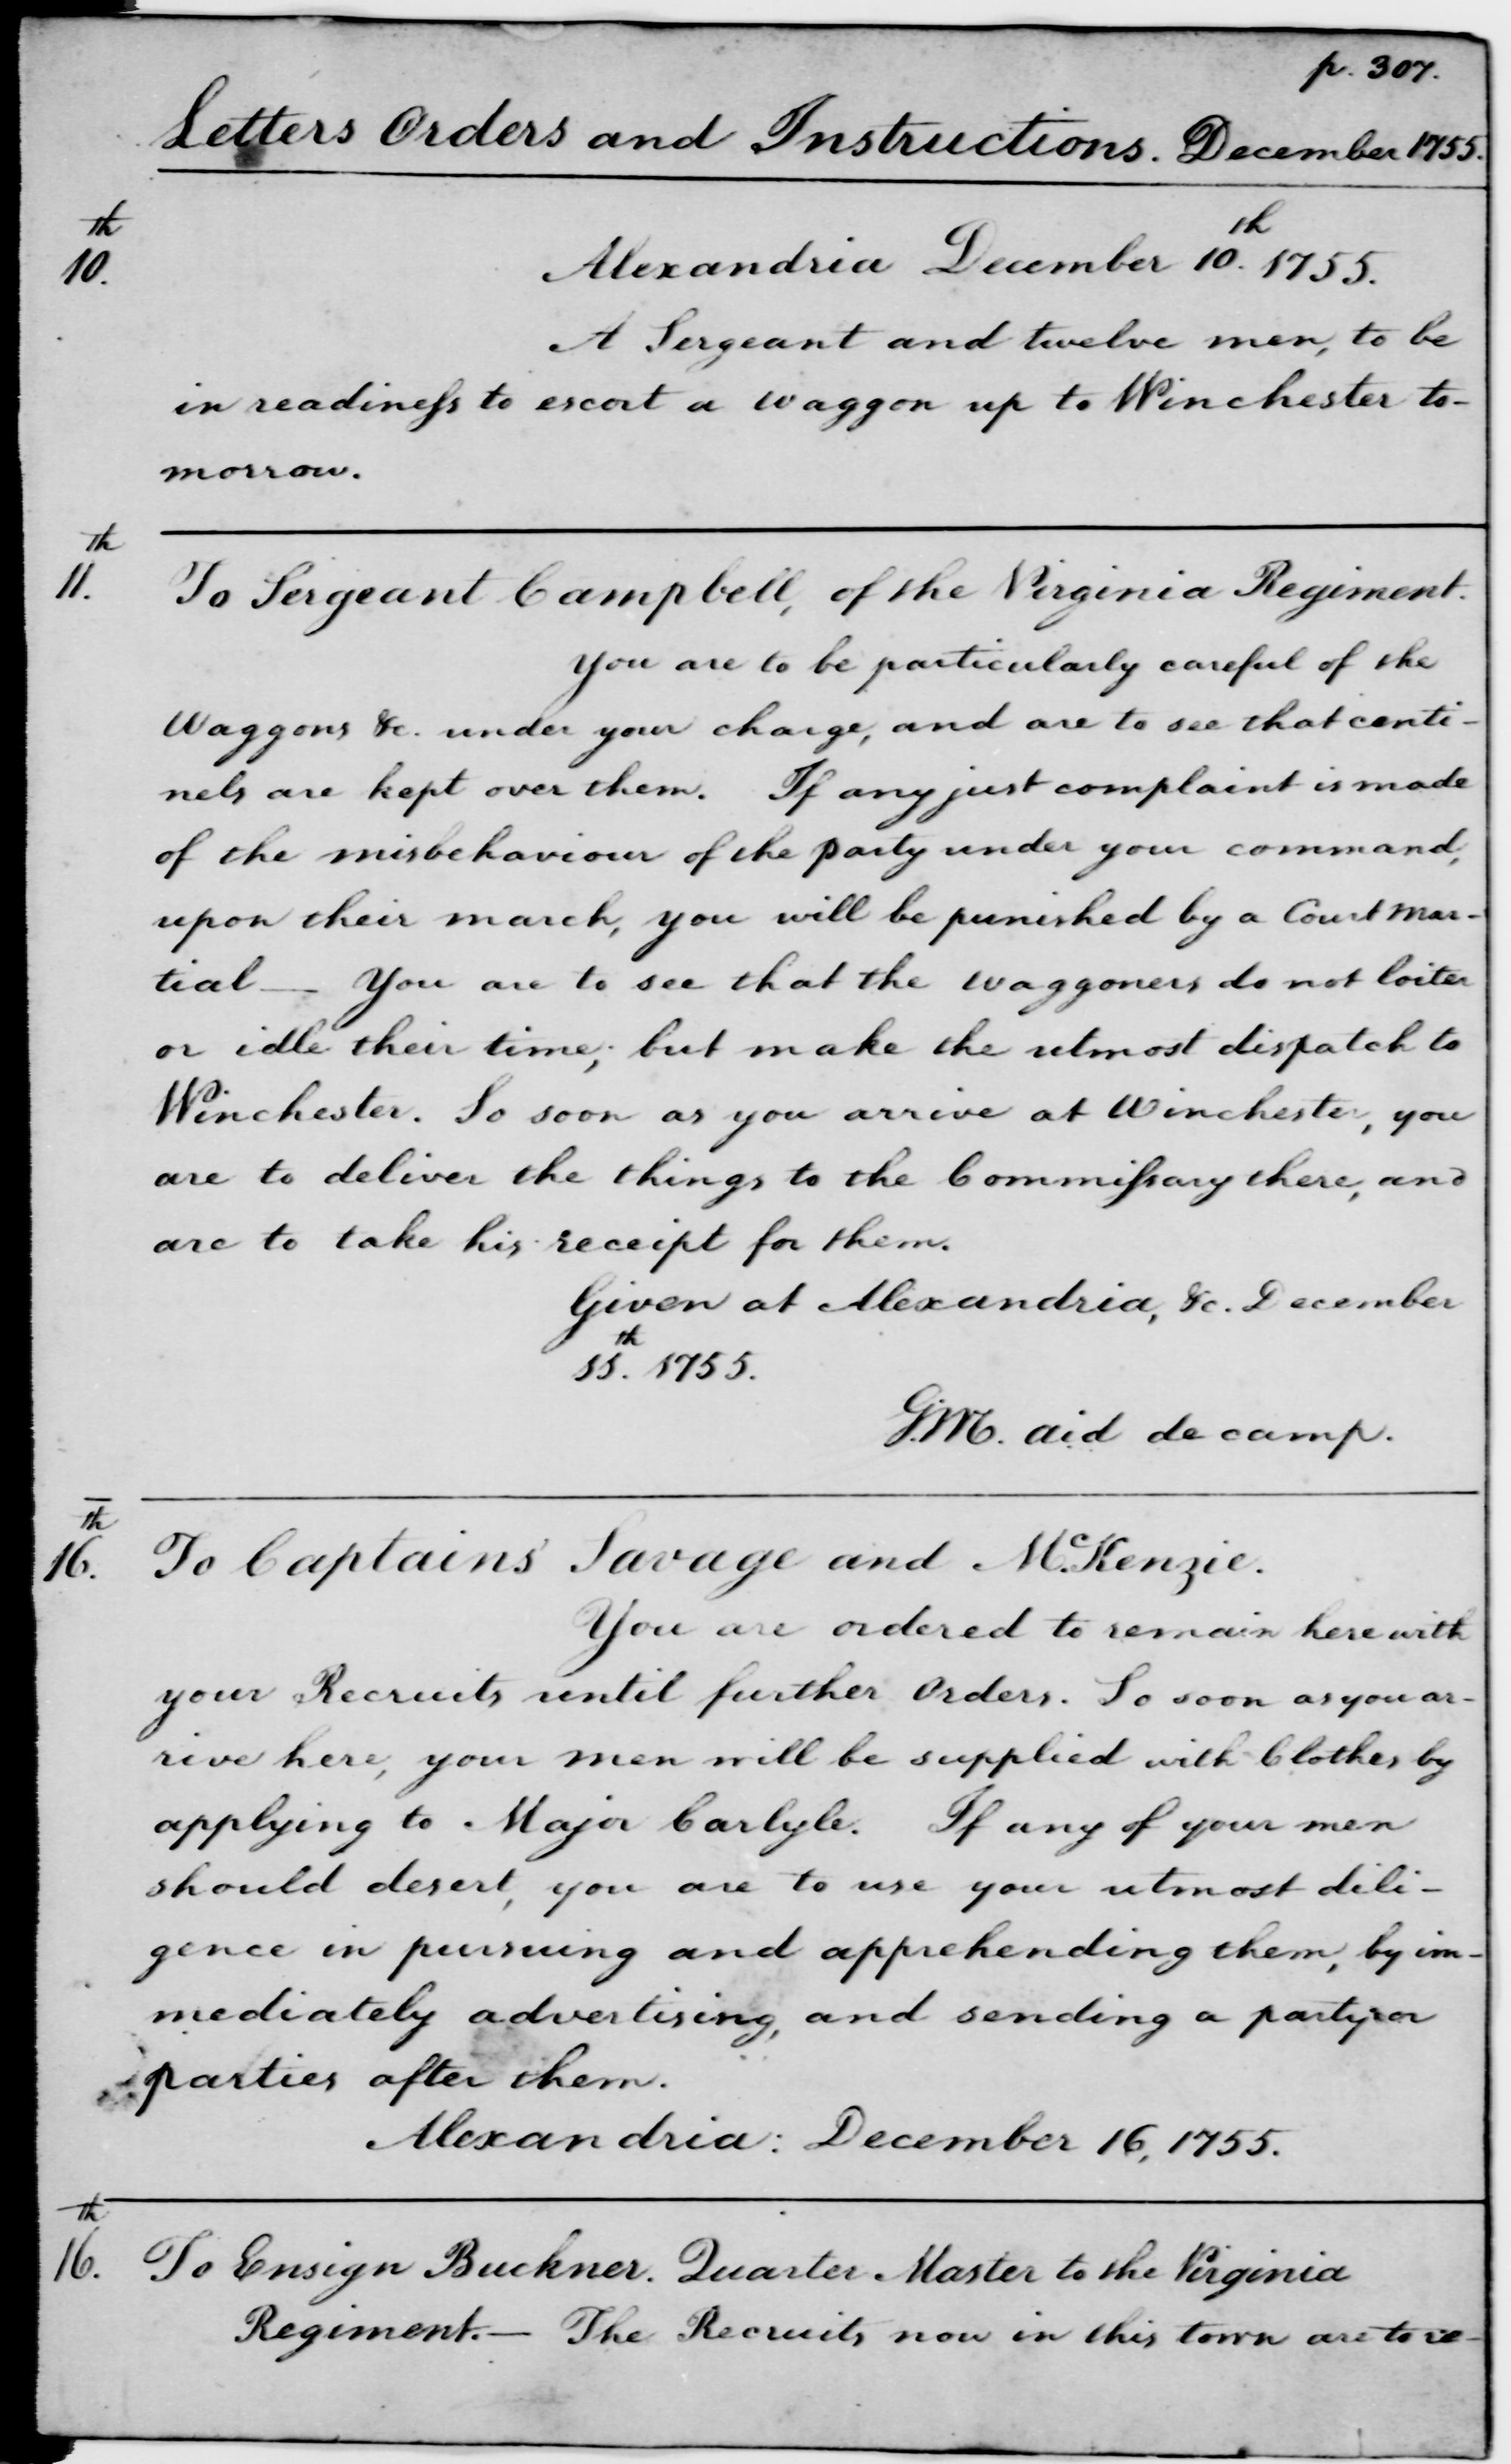 p. 307.
Letters Orders and Instructions. December 1755.
10.th
Alexandria December 10.th 1755.
A Sergeant and twelve men, to be
in readiness to escort a waggon up to Winchester to-
morrow.
11.th To Sergeant Campbell, of the Virginia Regiment.
You are to be particularly careful of the
Waggons &c. under your charge, and are to see that centi-
nels are kept over them. If any just complaint is made
of the misbehaviour of the party under your command,
upon their march, you will be punished by a Court mar-
tial — You are to see that the waggoners do not loiter
or idle their time; but make the utmost dispatch to
Winchester. So soon as you arrive at Winchester, you
are to deliver the things to the Commissary there, and
are to take his receipt for them.
Given at Alexandria, &c. December
11.th 1755.
G.M. aid de camp.
16.th To Captains Savage and McKenzie.
You are ordered to remain here with
your Recruits until further Orders. So soon as you ar-
rive here, your men will be supplied with Clothes by
applying to Major Carlyle. If any of your men
should desert, you are to use your utmost dili-
gence in pursuing and apprehending them, by im-
mediately advertising, and sending a party or
parties after them.
Alexandria: December 16, 1755.
16.th To Ensign Buckner. Quarter Master to the Virginia
Regiment.— The Recruits now in this town are to re-